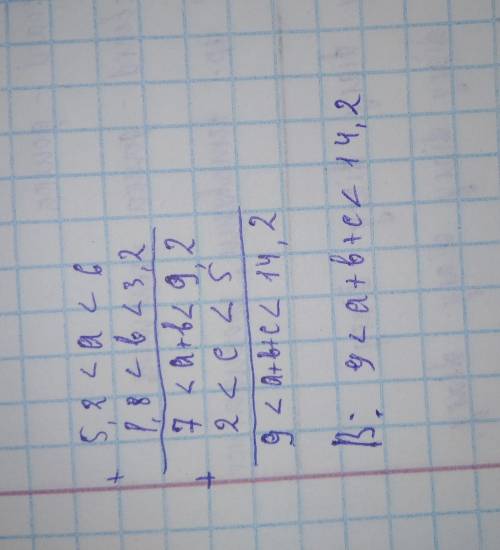 + 5,2 < a < 6
1,8 < b < 3,2
7 < a+b < 9,2
+ 2 < c < 5
9 < a+b+c < 14,2
В: 9 < a+b+c < 14,2